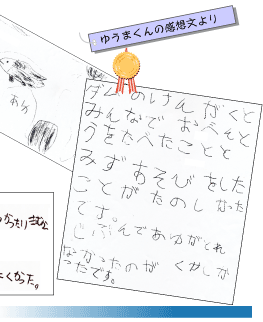 ゆうまくんの感想文より
ダムのけんがくと
みんなでおべんと
うをたべたことと
みずあそびをした
ことがたのしなった
てす。
じぶんであゆがとれ
なかったのがくやしか
ったです。
あゆ
かったり
くかった。